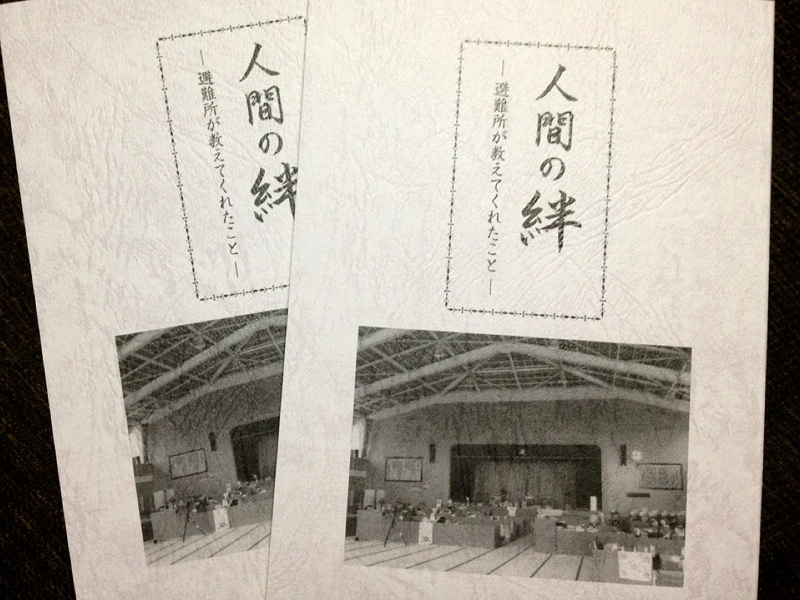 人間の絆
―避難所が教えてくれたこと―
人間の絆
―避難所が教えてくれたこと―